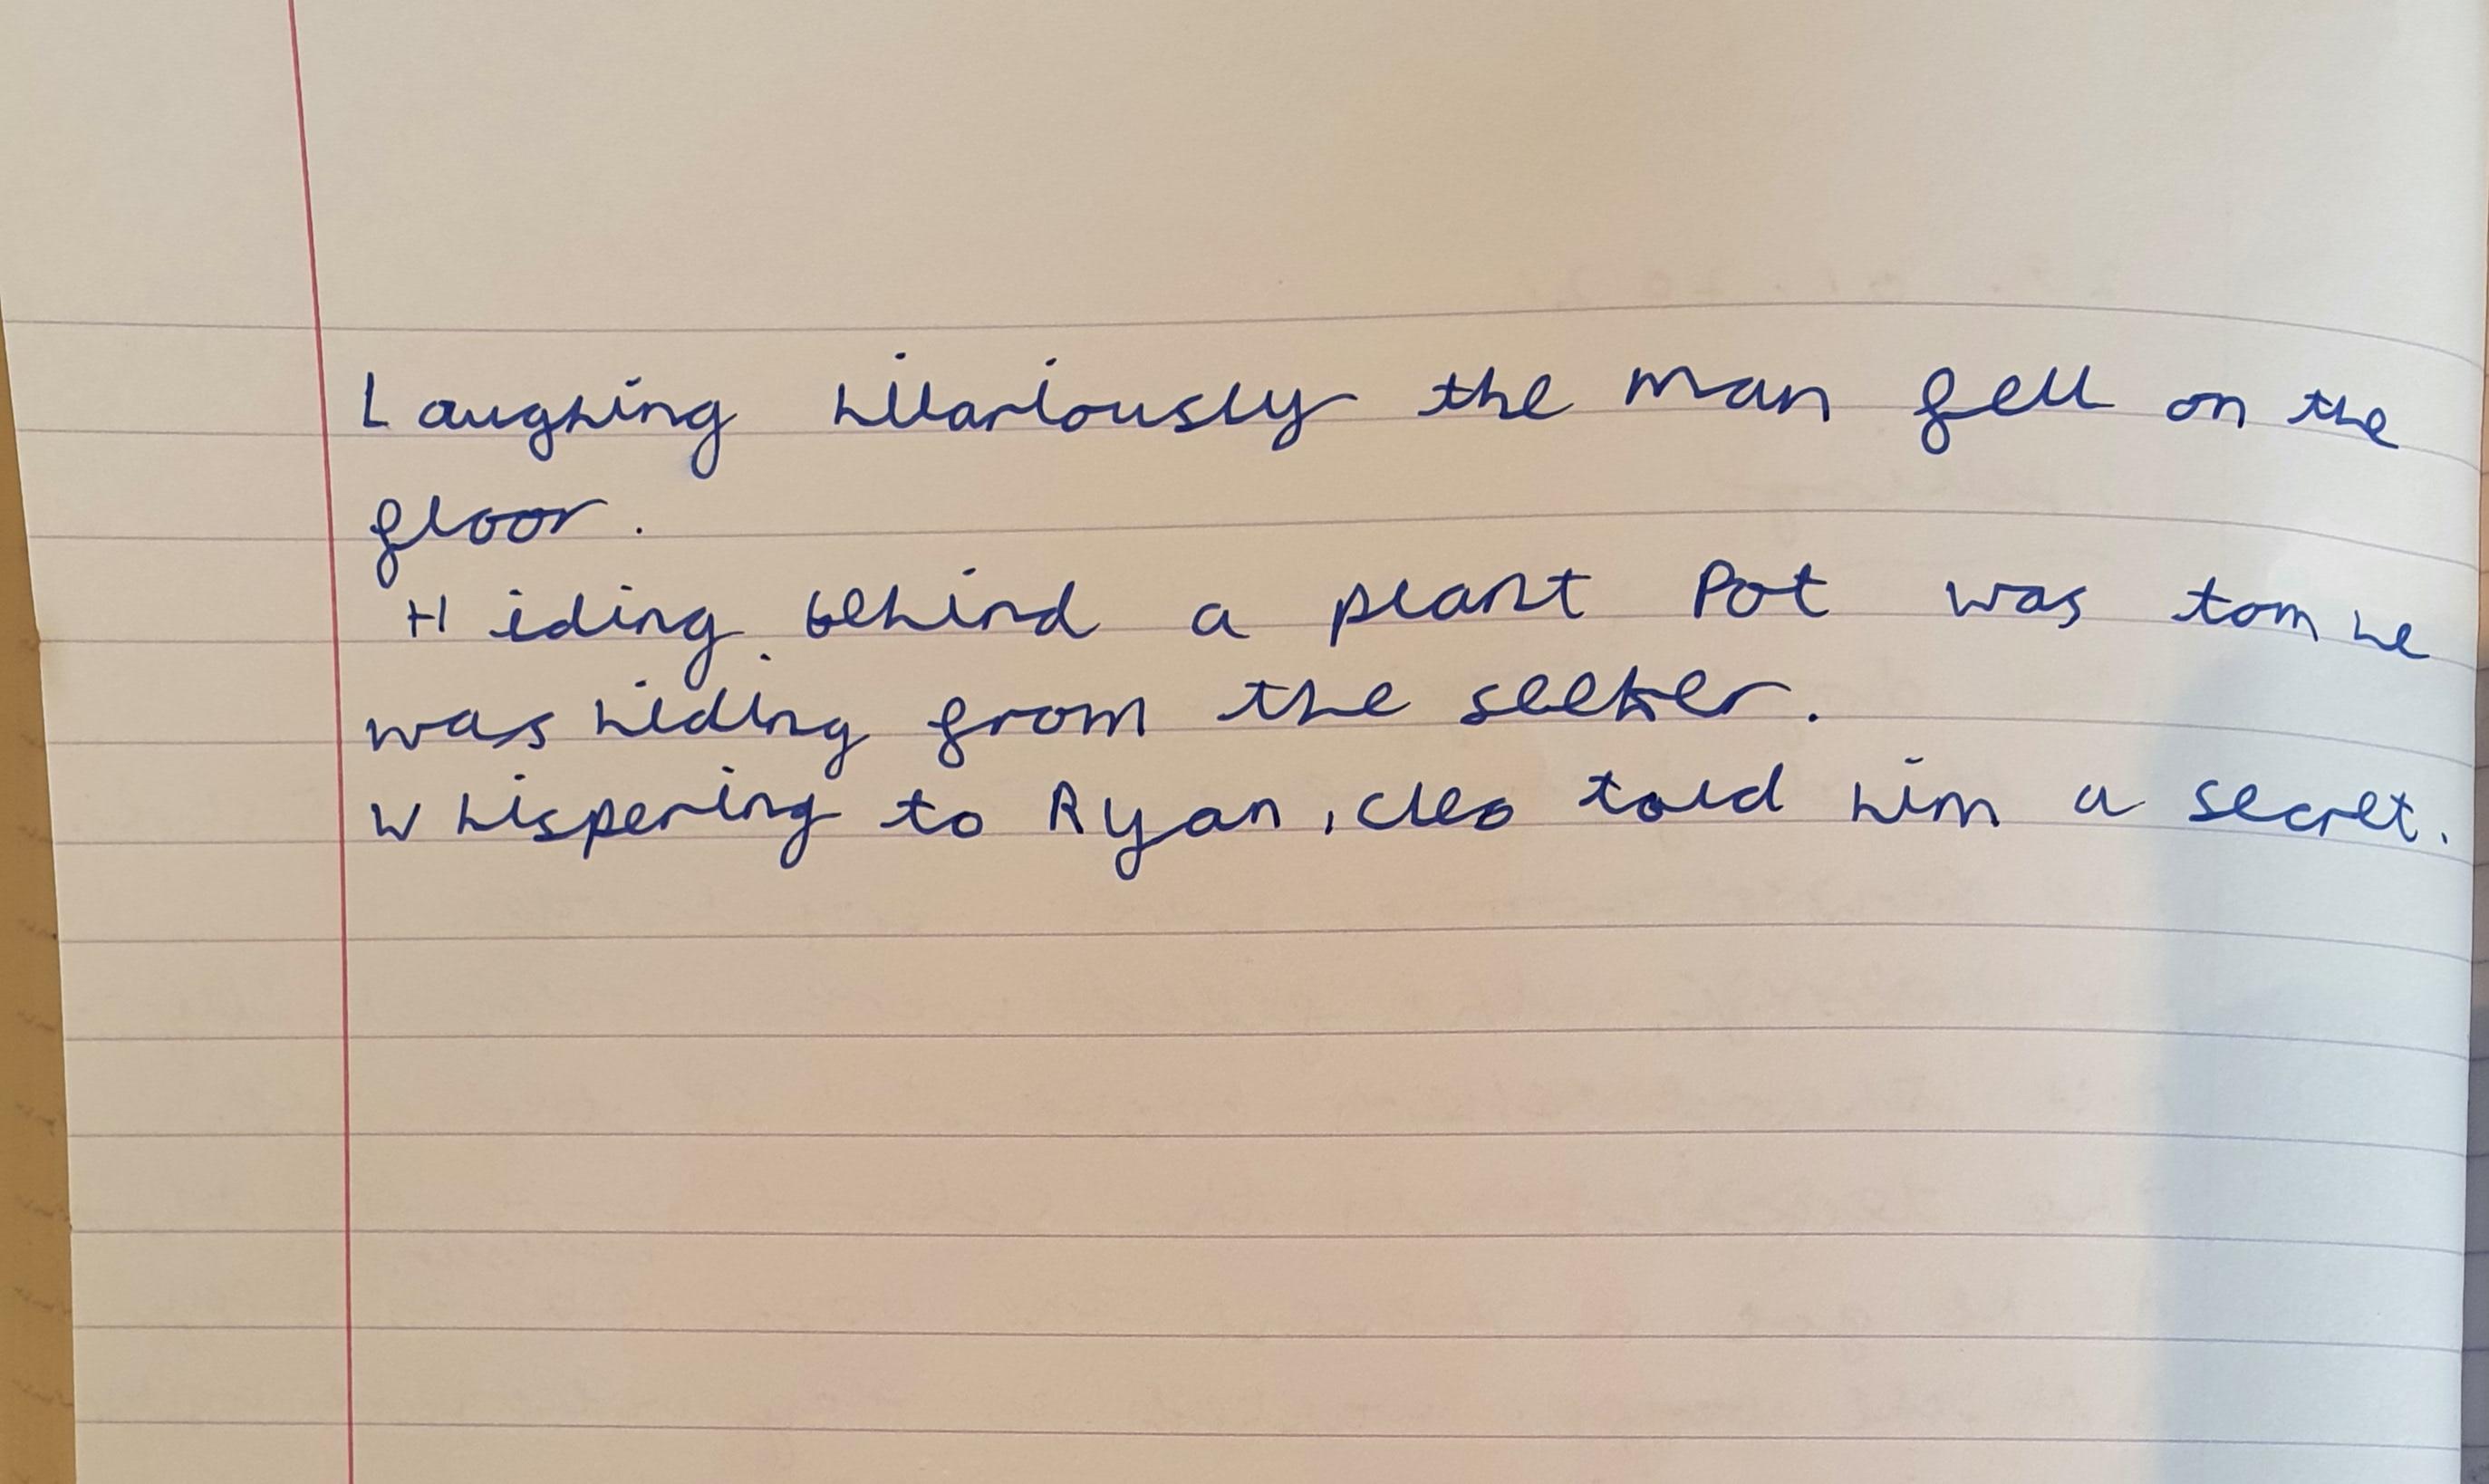 Laughing hillariously the man fell on the
floor.
Hiding behind a plant Pot was tom he
was hiding from the seeker.
Whispering to Ryan, cleo told him a secret.